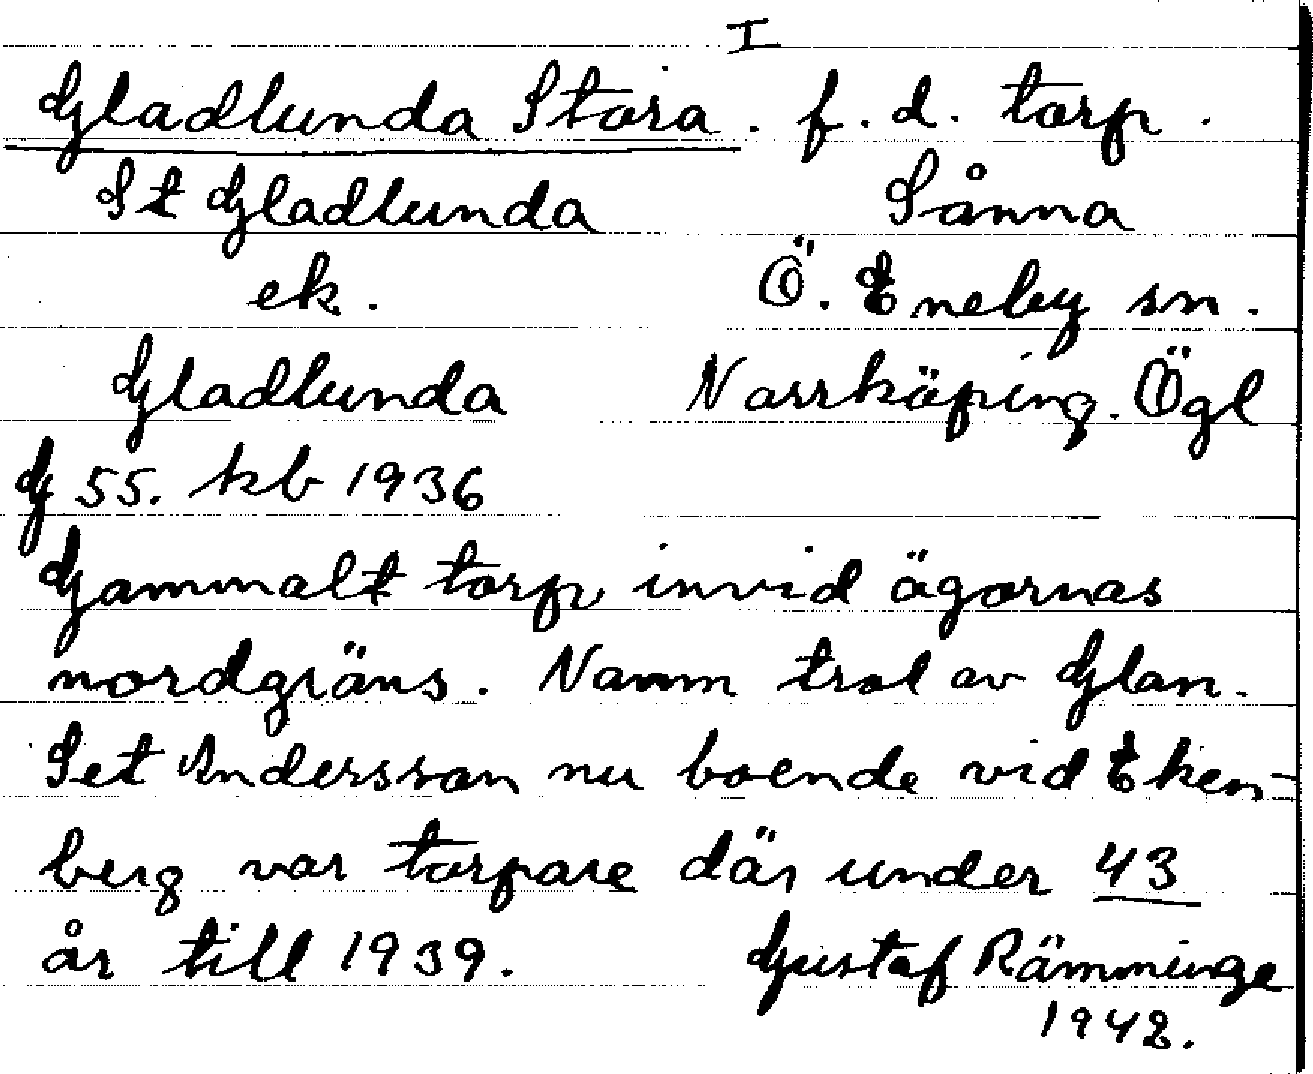 I
Gladlunda Stora. f. d. torp.
St Gladlunda Sånna
ek. Ö. Eneby sn.
Gladlunda Norrköping. Ögl
G 55. kb 1936
Gammalt torp invid ägornas
nordgräns. Namn trol av Glan.
Set Andersson nu boende vid Eken-
berg var torpare där under 43
år till 1939. Gustaf Rämminge
1942.